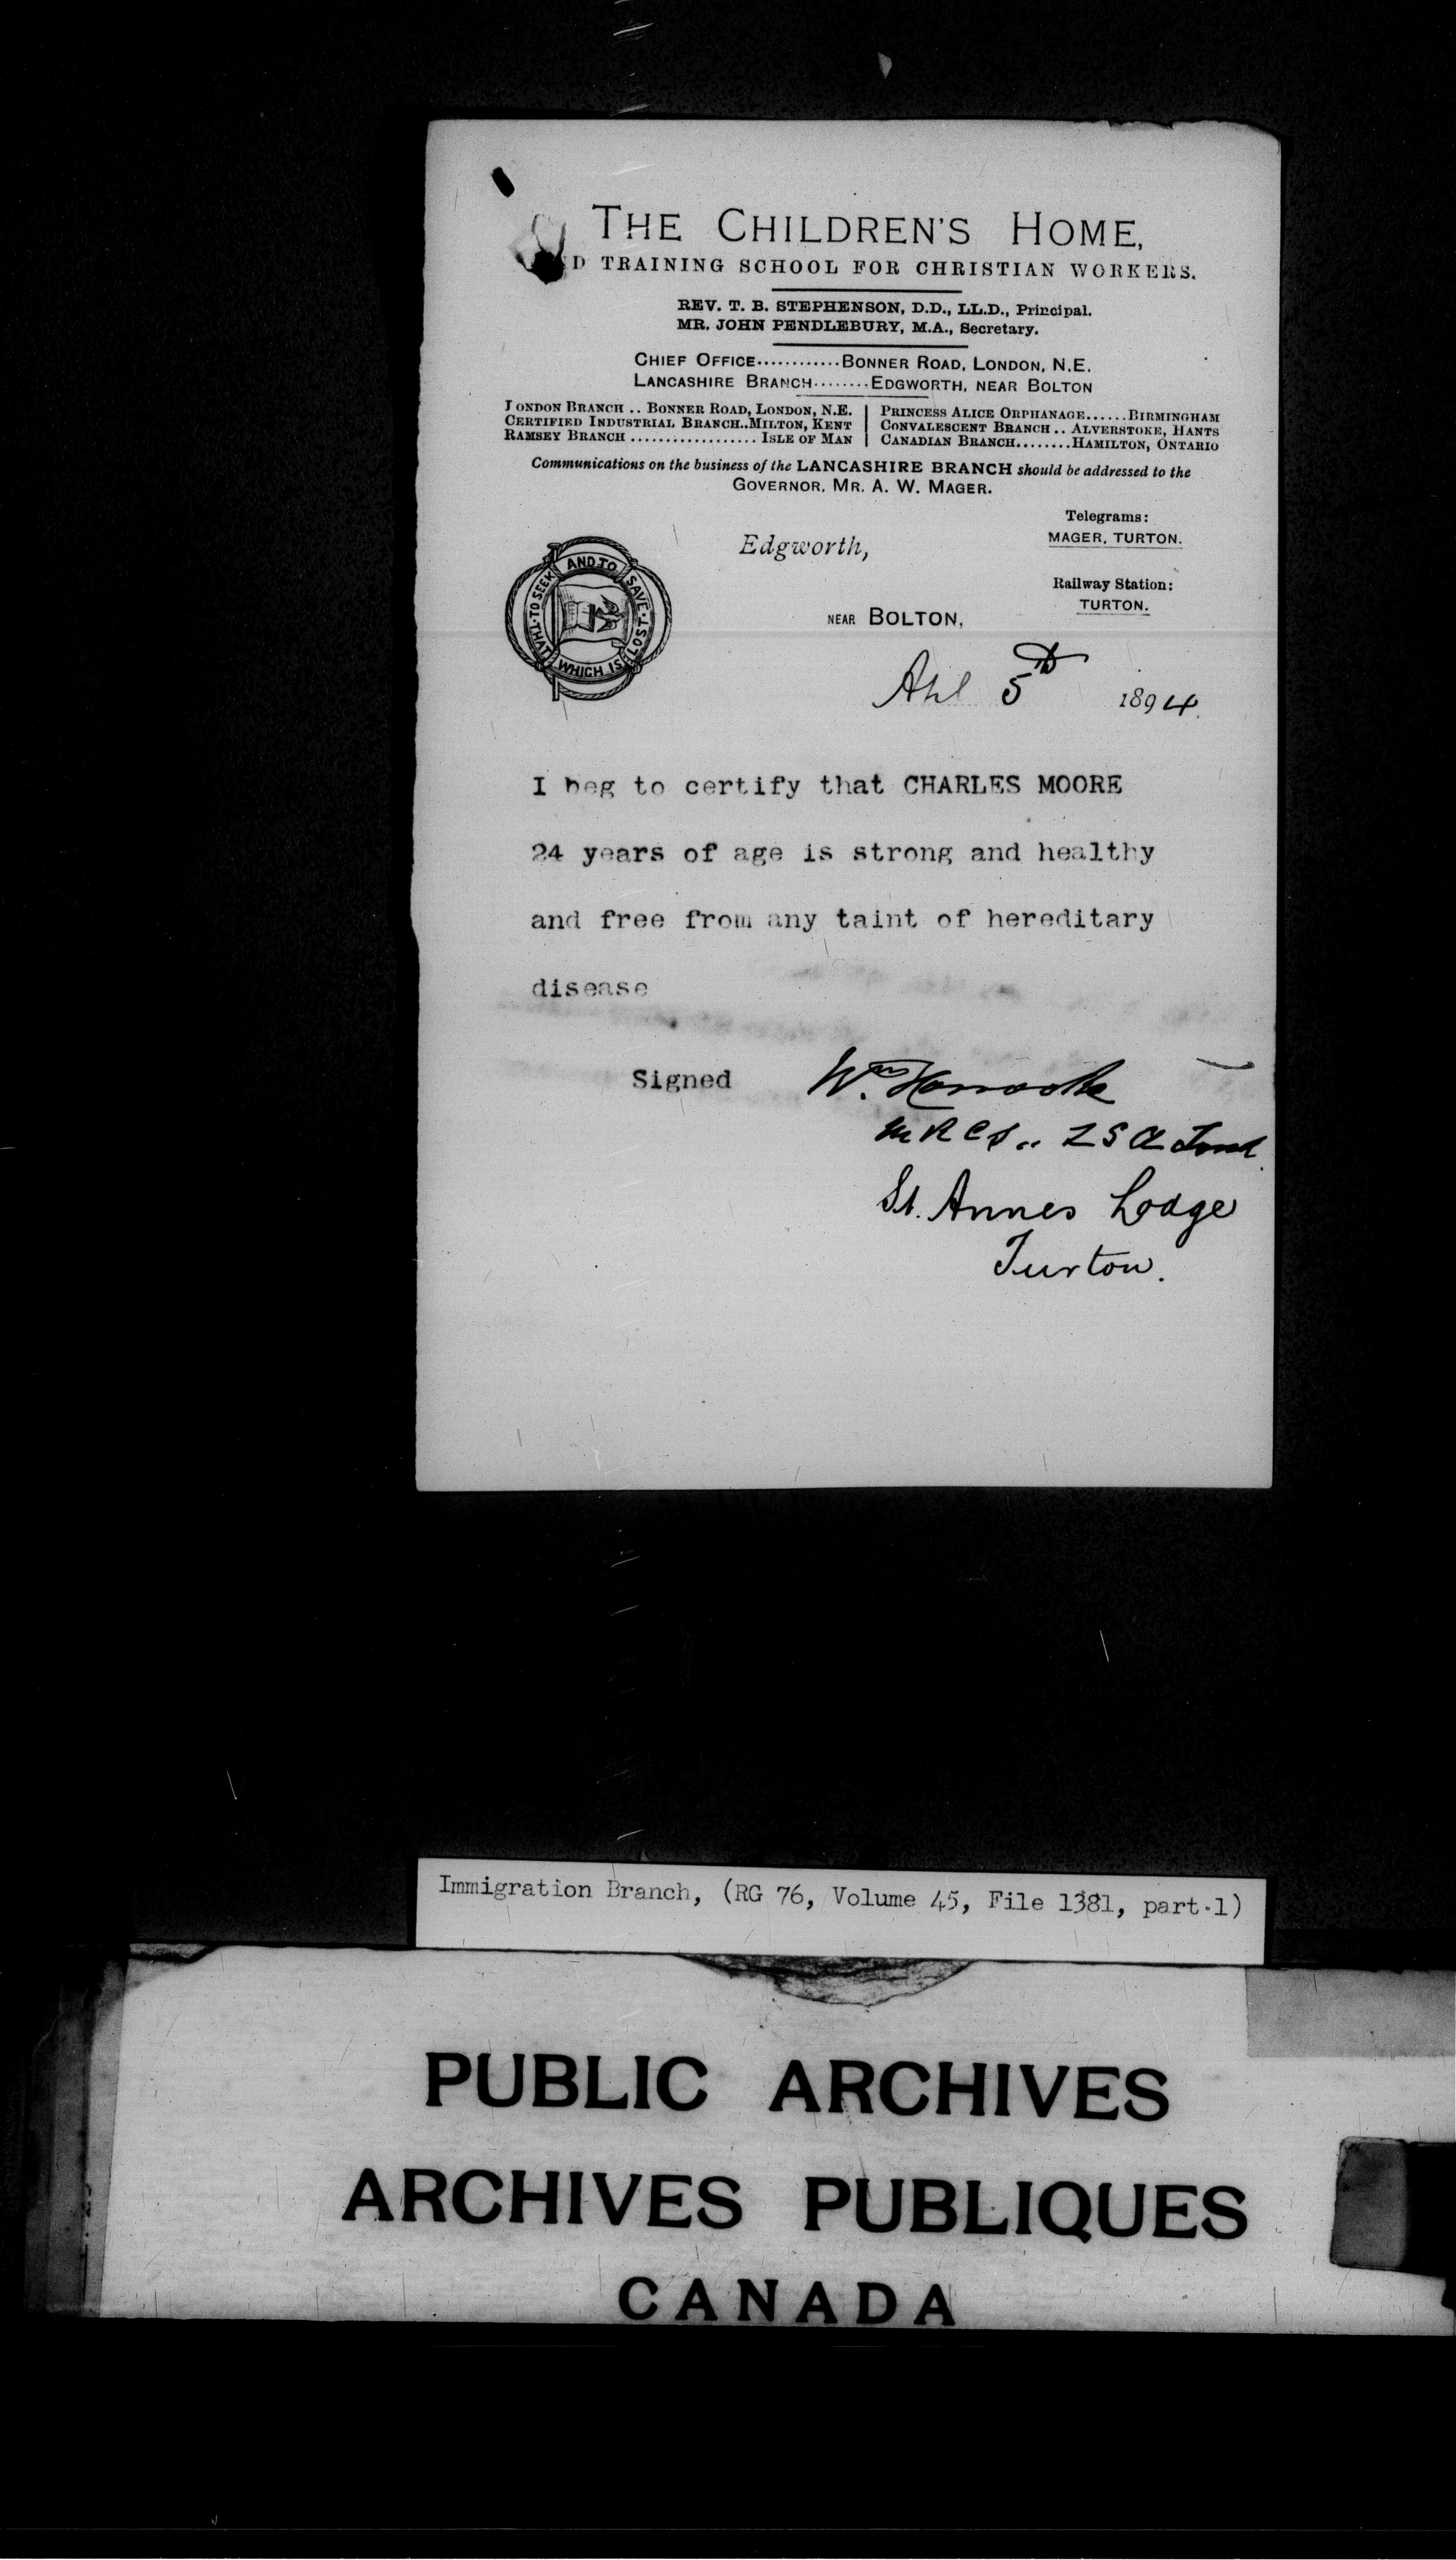 THE CHILDREN'S HOME,
D TRAINING SCHOOL FOR CHRISTIAN WORKERS.
REV. T. B. STEPHENSON, D.D., LL.D., Principal.
MR. JOHN PENDLEBURY, M.A., Secretary.
CHIEF OFFICE............BONNER ROAD, LONDON, N.E.
LANCASHIRE BRANCH........EDGWORTH, NEAR BOLTON
LONDON BRANCH .. BONNER ROAD, LONDON, N.E.
CERTIFIED INDUSTRIAL BRANCH..MILTON, KENT
RAMSEY BRANCH .................. ISLE OF MAN
PRINCESS ALICE ORPHANAGE......BIRMINGHAM
CONVALESCENT BRANCH .. ALVERSTOKE, HANTS
CANADIAN BRANCH........HAMILTON, ONTARIO
Communications on the business of the LANCASHIRE BRANCH should be addressed to the
GOVERNOR, MR. A. W. MAGER.
Telegrams:
MAGER, TURTON.
Edgworth,
Railway Station:
TURTON.
NEAR BOLTON,
THAT · TO SEEK AND TO SAVE · LOST · WHICH IS
5th 1894.
I beg to certify that CHARLES MOORE
24 years of age is strong and healthy
and free from any taint of hereditary
disease
Signed Wm. Horrocks
MRCS.. LSA Lond.
St. Annes Lodge
Turton.
Immigration Branch, (RG 76, Volume 45, File 1381, part.1)
PUBLIC ARCHIVES
ARCHIVES PUBLIQUES
CANADA